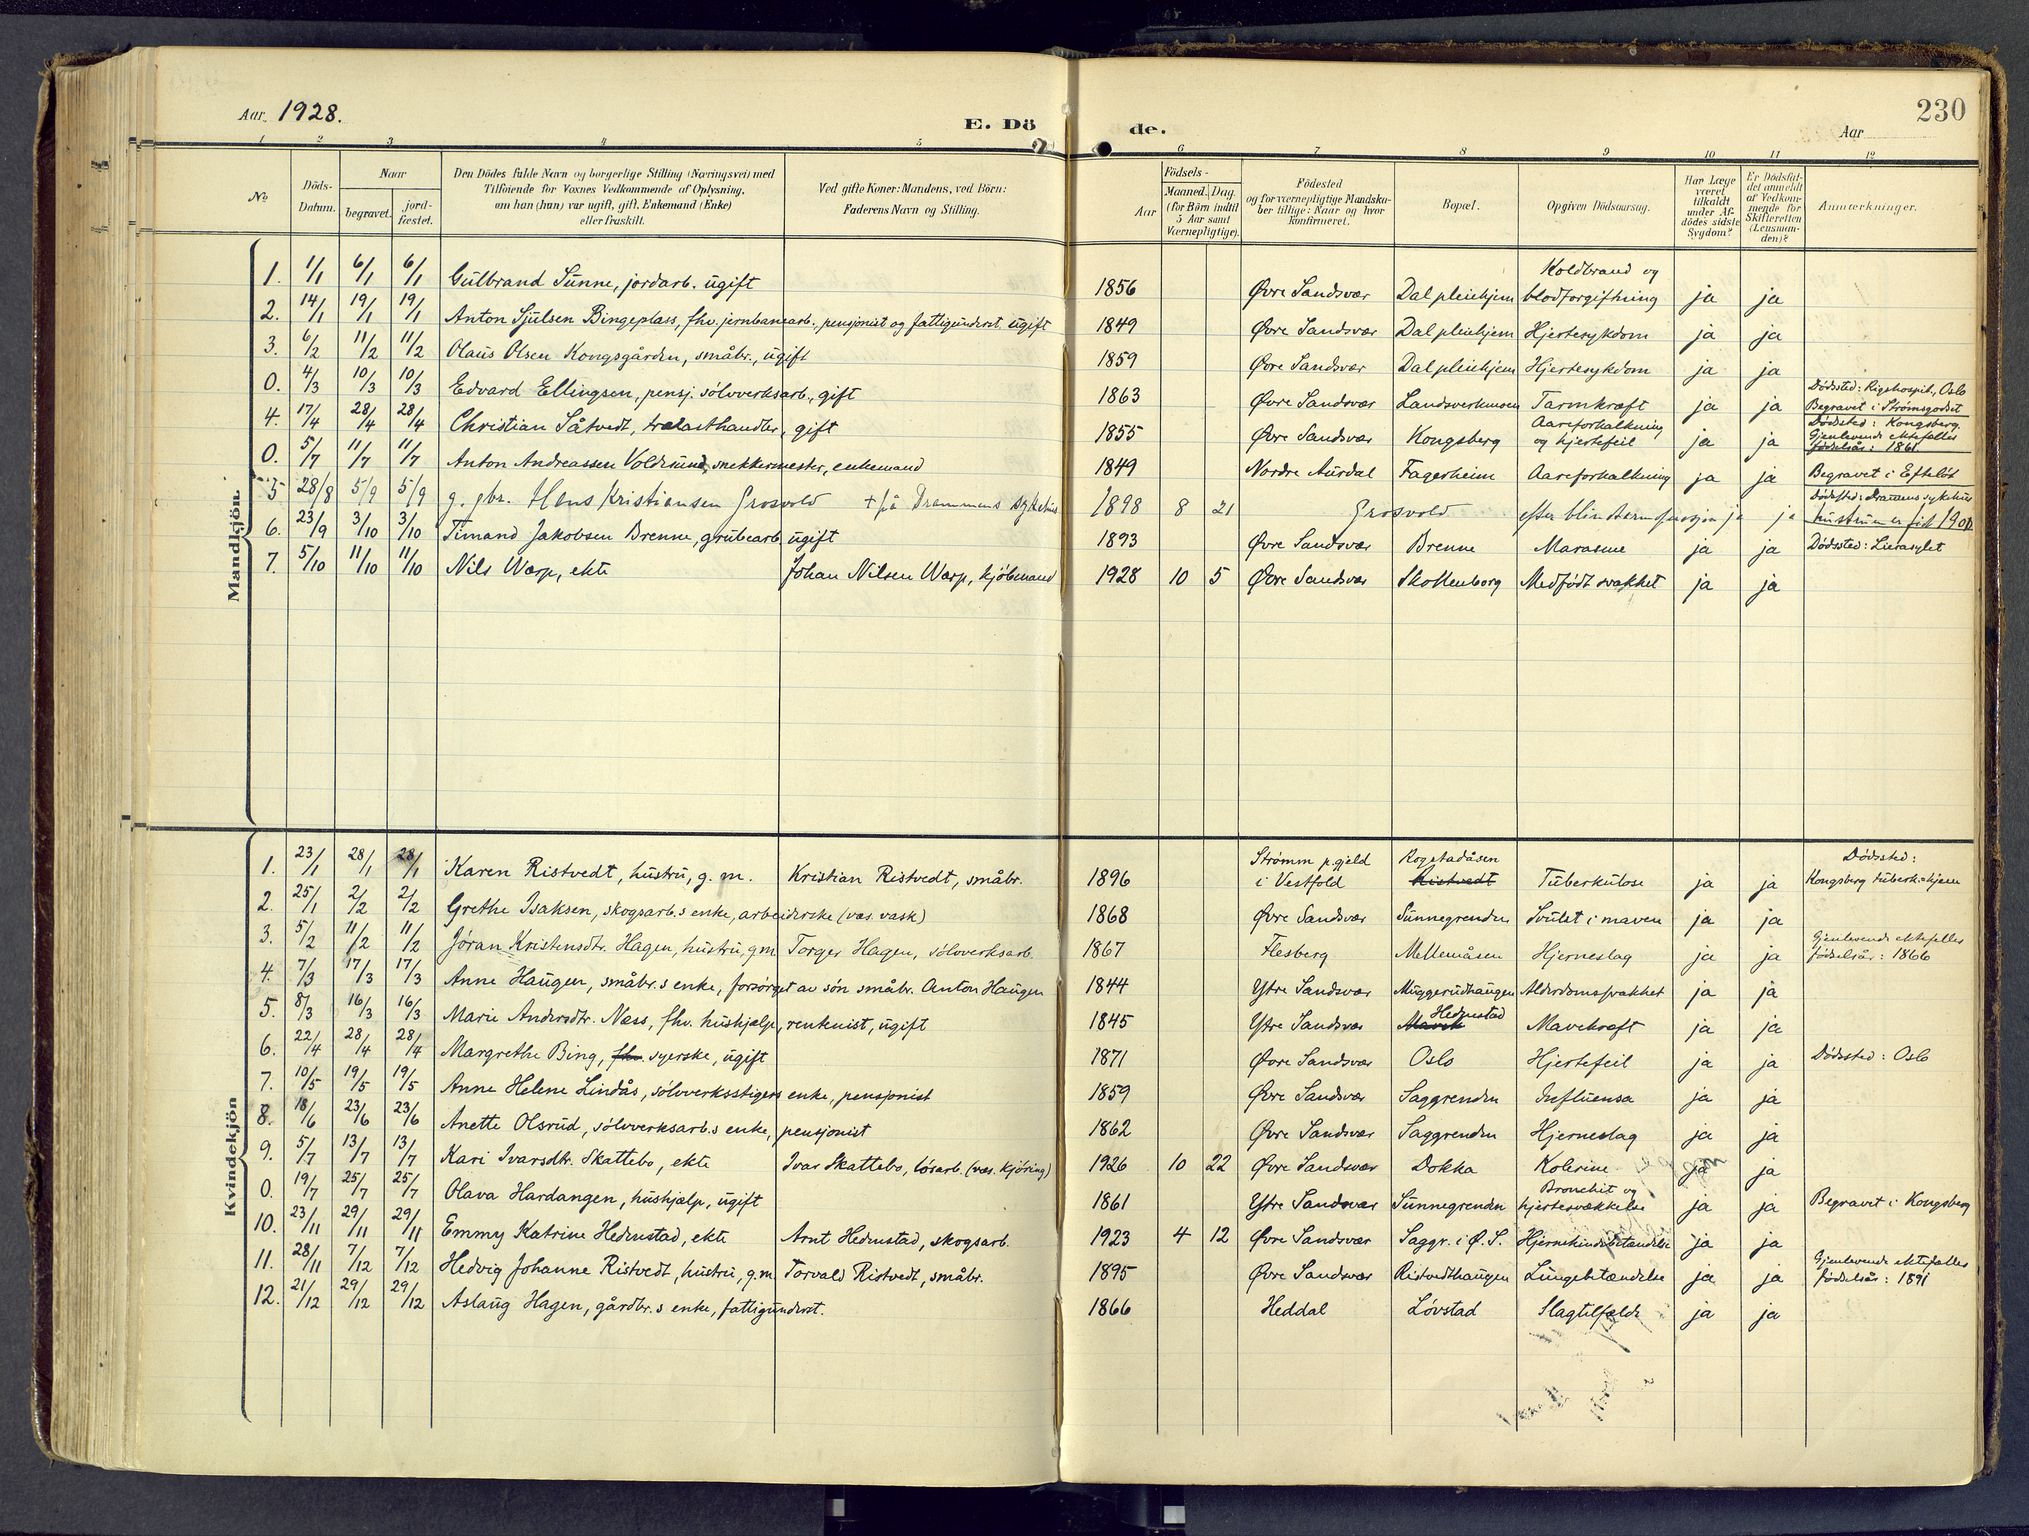 Aar 1928.
E. Dö
de.
Aar
230
1 2 3 4 5 6 7 8 9 10 11 12
No
Döds-Datum.
Naar
begravet.
jord-fæstet.
Den Dödes fulde Navn og borgerlige Stilling (Næringsvei) med
Tilföiende for Voxnes Vedkommende af Oplysning,
om han (hun) var ugift, gift, Enkemand (Enke)
eller fraskilt.
Ved gifte Koner: Mandens, ved Börn:
Faderens Navn og Stilling.
Aar
Födsels-
Maaned. Dag.
(for Börn indtil
5 Aar samt
Værnepligtige).
Födested
og for værnepligtige Mandska-
ber tillige: Naar og hvor
konfirmeret.
Bopæl.
Opgiven Dödsaarsag.
Har Læge
været
tilkaldt
under Af-
dödes sidste
Sygdom?
Er Dödsfal-
det anmeldt
af Vedkom-
mende for
Skifteretten
(Lensman-
den)?
Anmærkninger.
Mandkjön.
1. 1/1 6/1 6/1 Gulbrand Sunne, jordarb. ugift 1856 Øvre Sandsvær Dal pleiehjem Koldbrand og blodforgiftning ja ja
2. 14/1 19/1 19/1 Anton Sjulsen Bingeplass, fhv. jernbanearb., pensjonist og fattigunderst. ugift 1849 Øvre Sandsvær Dal pleiehjem Hjertesykdom ja ja
3. 6/2 11/2 11/2 Olaus Olsen Kongsgården, småbr., ugift 1859 Øvre Sandsvær Dal pleiehjem Hjertesykdom ja ja
0. 4/3 10/3 10/3 Edvard Ellingsen, pensj. sølvverksarb., gift 1863 Øvre Sandsvær Landsverkmoen Tarmkræft ja ja Dødssted: Rigshospit., Oslo Begravet i Strømsgodset
4. 17/4 28/4 28/4 Christian Såtvedt, trælasthandler, gift 1855 Øvre Sandsvær Kongsberg Aareforkalkning og hjertefeil ja ja Dødssted: Kongsberg. Gjenlevende ektefælles fødselsår: 1861
0. 5/7 11/7 11/7 Anton Andreassen Voldsund, snekkermester, enkemand 1849 Nordre Aurdal Fagerheim Aareforkalkning ja ja Begravet i Efteløt
5 28/8 5/9 5/9 g. gbr. Hans Kristiansen Grosvold + på Drammens sykehus 1898 8 21 Grosvold efter blindtarmoperasjon ja ja Dødssted: Drammens sykehus hustruen er født 1900
6. 23/9 3/10 3/10 Timand Jakobsen Brenne, grubearb. ugift 1893 Øvre Sandsvær Brenne Marasme ja ja Dødssted: Lierasylet
7. 5/10 11/10 11/10 Nils Warp, ekte Johan Nilsen Warp, kjøbmand 1928 10 5 Øvre Sandsvær Skollenborg Medfødt svakhet ja ja
Kvindekjön
1. 23/1 28/1 28/1 Karen Ristvedt, hustru, g. m. Kristian Ristvedt, småbr. 1896 Strømm p.gjeld i Vestfold Rogstadåsen Ristvedt Tuberkulose ja ja Dødssted: Kongsberg tuberk.hjem
2. 25/1 2/2 2/2 Grethe Isaksen, skogsarb.s enke, arbeiderske (væs. vask) 1868 Øvre Sandsvær Sunnegrenden Svulst i maven ja ja
3. 5/2 11/2 11/2 Jøran Kristensdtr. Hagen, hustru, g.m. Torger Hagen, sølvverksarb. 1867 Flesberg Mellemåsen Hjerneslag ja ja Gjenlevende ektefælles fødselsår: 1866
4. 7/3 17/3 17/3 Anne Haugen, småbr.s enke, forsørget av søn småbr. Anton Haugen 1844 Ytre Sandsvær Muggerudhaugen Alderdomssvakhet ja ja
5. 8/3 16/3 16/3 Marie Andersdtr. Næss, fhv. hushjælp, renkenist, ugift 1845 Ytre Sandsvær Hedenstad Mavekræft ja ja
6. 22/4 28/4 28/4 Margrethe Bing, fhv. syerske, ugift 1871 Øvre Sandsvær Oslo Hjertefeil ja ja Dødssted: Oslo
7. 10/5 19/5 19/5 Anne Helene Lindås, sølvverksstigers enke, pensjonist 1859 Øvre Sandsvær Saggrenden Influensa ja ja
8. 18/6 23/6 23/6 Anette Olsrud, sølvverksarb.s enke, pensjonist 1862 Øvre Sandsvær Saggrenden Hjerneslag ja ja
9. 5/7 13/7 13/7 Kari Ivarsdtr. Skattebo, ekte Ivar Skattebo, løsarb. (væs. kjøring) 1926 10 22 Øvre Sandsvær Dokka Kolerine ja ja
0. 19/7 25/7 25/7 Olava Hardangen, hushjælp, ugift 1861 Ytre Sandsvær Sunnegrenden Bronchit og hjertesvækkelse ja ja Begravet i Kongsberg
10. 23/11 29/11 29/11 Emmy Katrine Hedenstad, ekte Arnt Hedenstad, skogsarb. 1923 4 12 Øvre Sandsvær Saggr. i Ø. S. Hjernehindebetændelse ja ja
11. 28/11 7/12 7/12 Hedvig Johanne Ristvedt, hustru, g.m. Torvald Ristvedt, småbr. 1895 Øvre Sandsvær Ristvedthaugen Lungebetændelse ja ja Gjenlevende ektefælles fødselsår: 1891
12. 21/12 29/12 29/12 Aslaug Hagen, gårdbr.s enke, fattigunderst. 1866 Heddal Løvstad Slagtilfælde ja ja